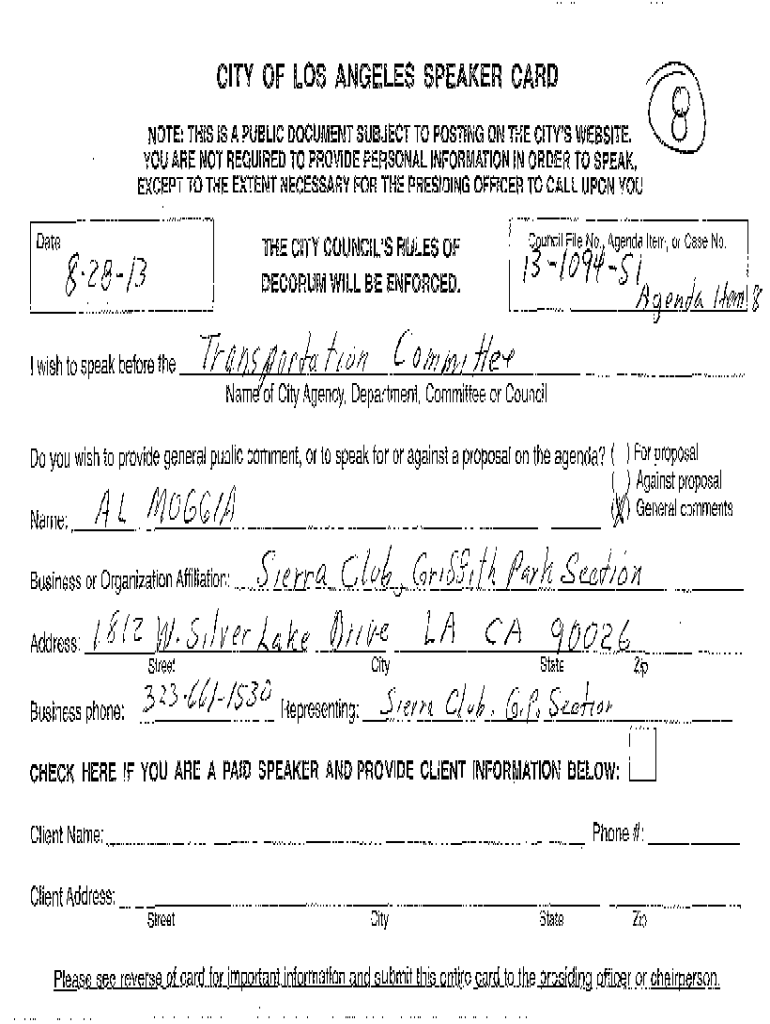 CITY OF LOS ANGELES SPEAKER CARD
8
NOTE: THIS IS A PUBLIC DOCUMENT SUBJECT TO POSTING ON THE CITY'S WEBSITE.
YOU ARE NOT REQUIRED TO PROVIDE PERSONAL INFORMATION IN ORDER TO SPEAK,
EXCEPT TO THE EXTENT NECESSARY FOR THE PRESIDING OFFICER TO CALL UPON YOU
Date
8-28-13
THE CITY COUNCIL'S RULES OF
DECORUM WILL BE ENFORCED.
Council File No., Agenda Item, or Case No.
13-1094-S1
Agenda Item 8
I wish to speak before the Transportation Committee
Name of City Agency, Department, Committee or Council
Do you wish to provide general public comment, or to speak for or against a proposal on the agenda? ( ) For proposal
( ) Against proposal
(X) General comments
Name: AL MOGGIA
Business or Organization Affiliation: Sierra Club, Griffith Park Section
Address: 1812 W. Silver Lake Drive LA CA 90026
Street City State Zip
Business phone: 323-661-1530 Representing: Sierra Club, G.P. Section
CHECK HERE IF YOU ARE A PAID SPEAKER AND PROVIDE CLIENT INFORMATION BELOW:
Client Name: Phone #:
Client Address:
Street City State Zip
Please see reverse of card for important information and submit this entire card to the presiding officer or chairperson.